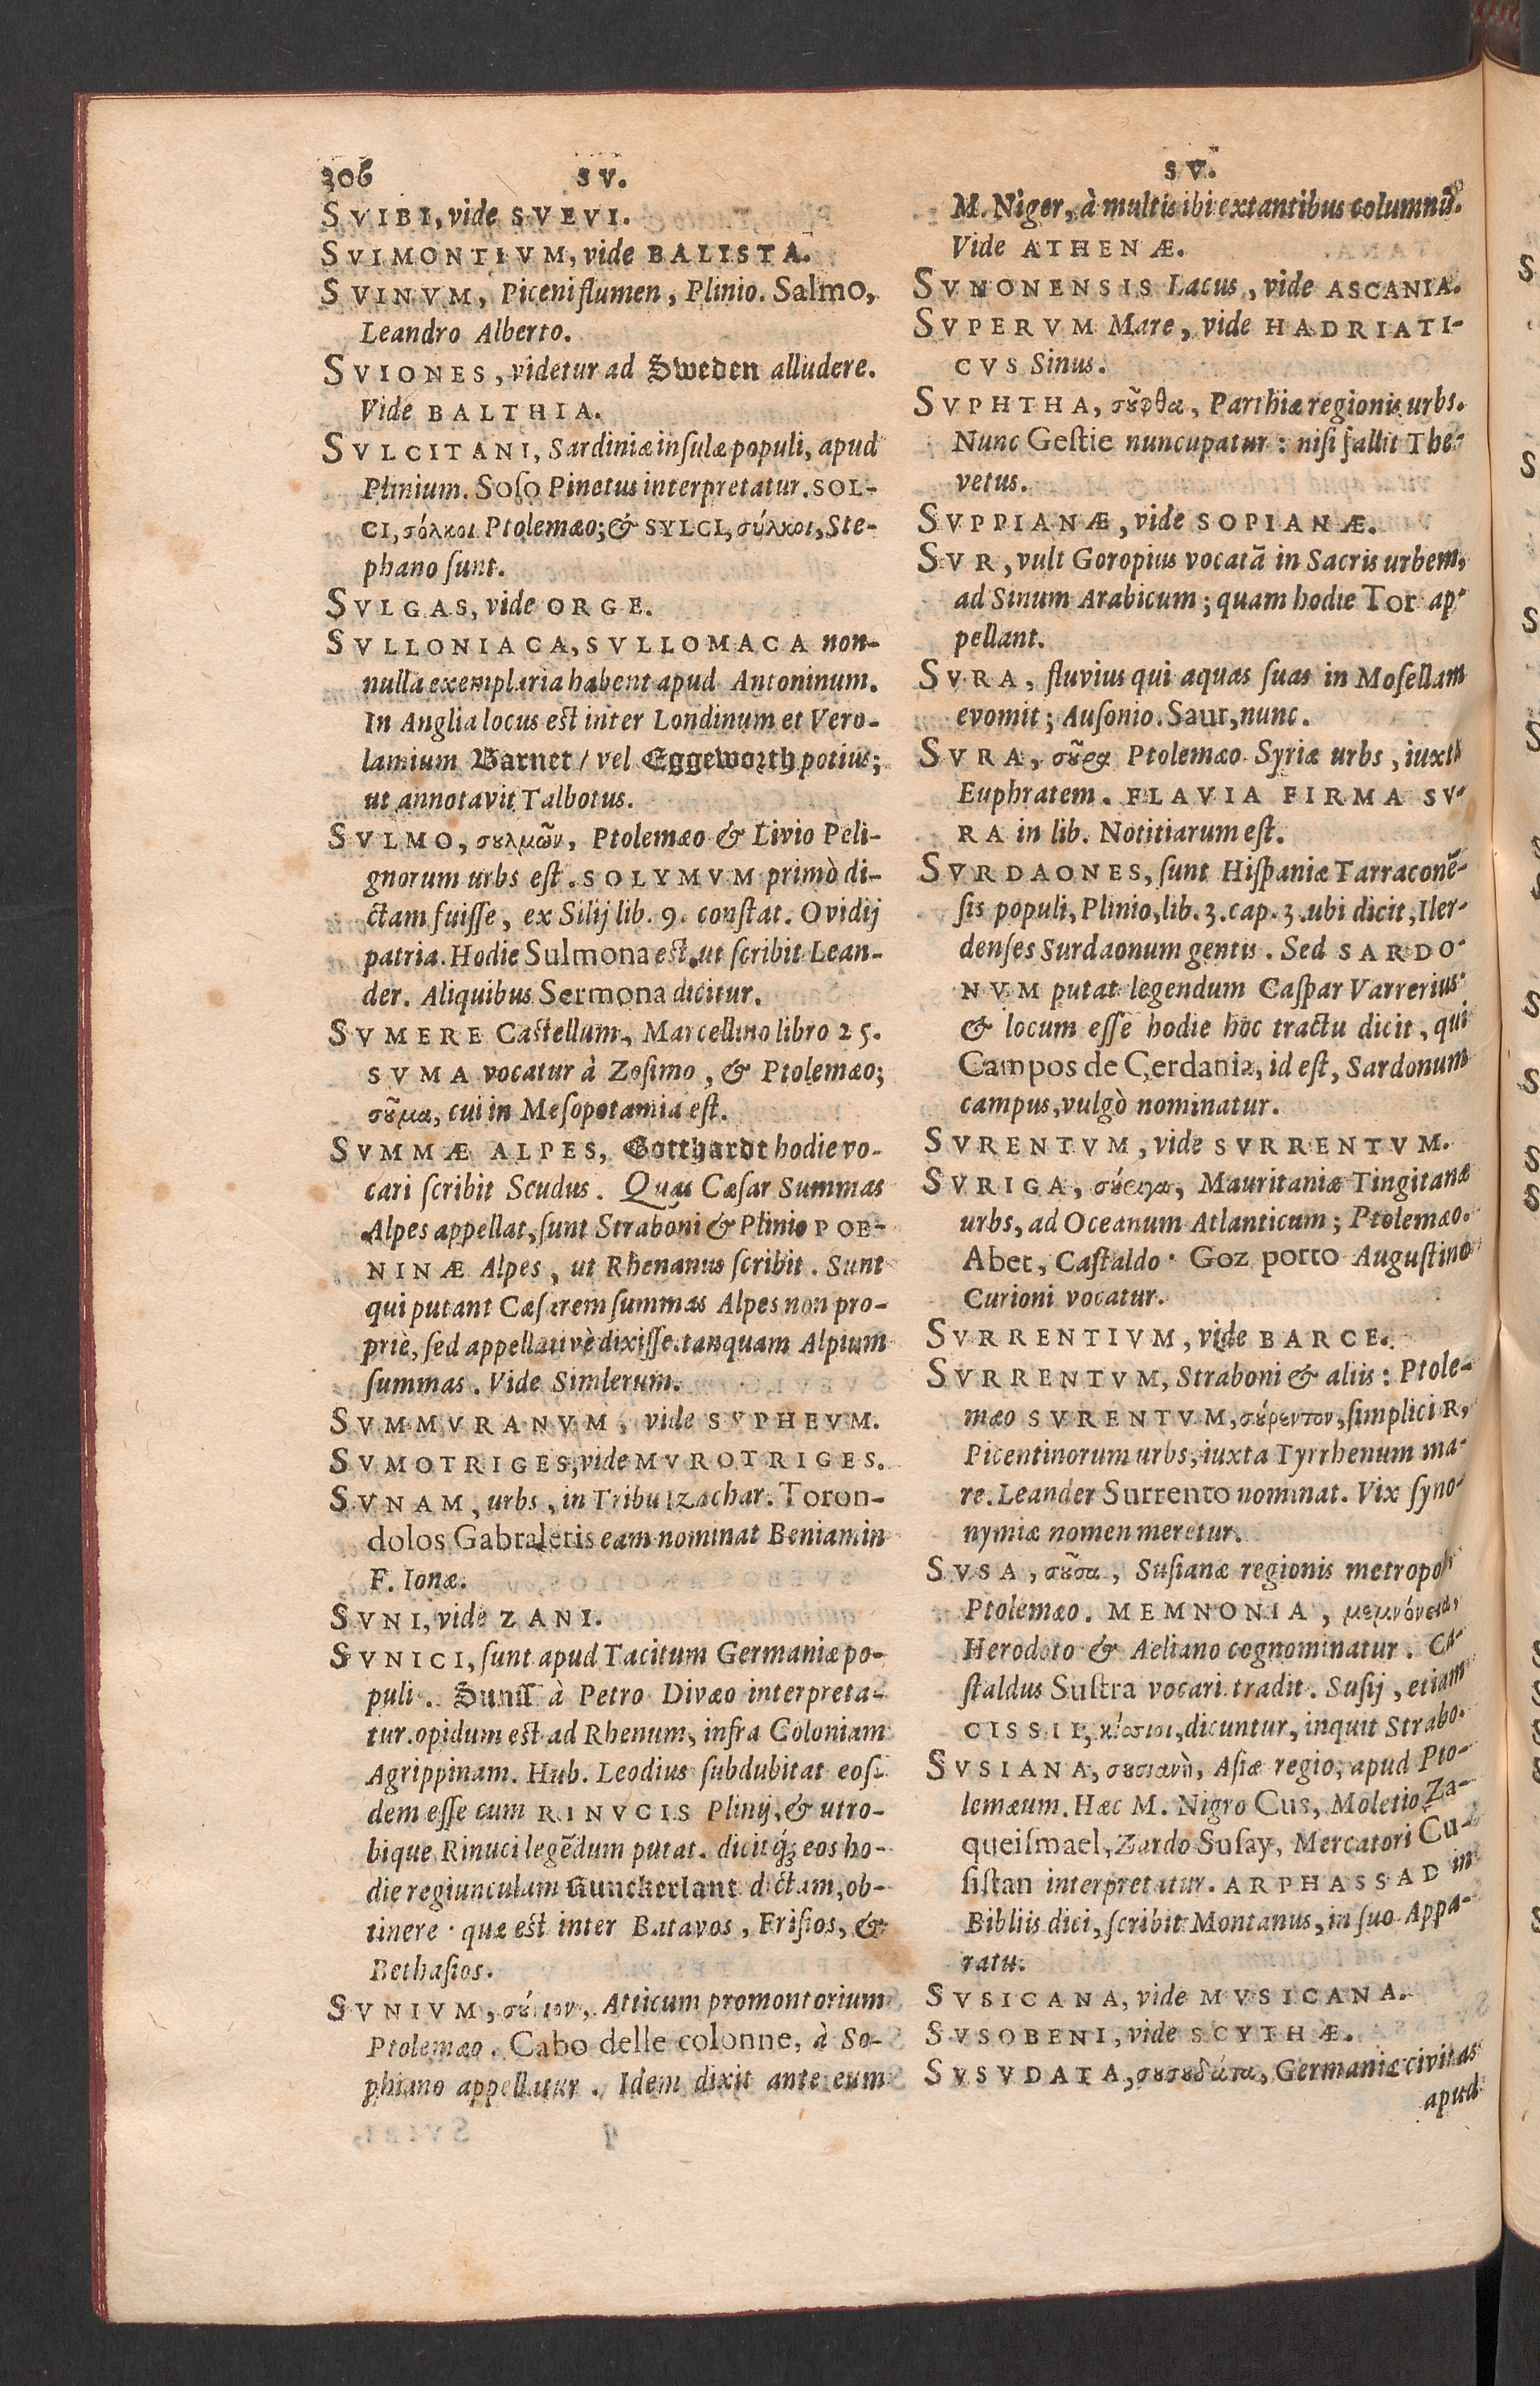 306 SV.
SVIBI, vide SVEVI.
SVIMONTIVM, vide BALISTA.
SVINVM, Piceni flumen, Plinio. Salmo,
Leandro Alberto.
SVIONES, videtur ad Sweden alludere.
Vide BALTHIA.
SVLCITANI, Sardiniæ insulæ populi, apud
Plinium. Solo Pinetus interpretatur. SOL-
CI, σόλκοι Ptolemæo; & SYLCI, σύλκοι, Ste-
phano sunt.
SVLGAS, vide ORGE.
SVLLONIACA, SVLLOMACA non-
nulla exemplaria habent apud Antoninum.
In Anglia locus est inter Londinum et Vero-
lamium Barnet / vel Eggeworth potius;
ut annotavit Talbotus.
SVLMO, σȣλμῶν, Ptolemæo & Livio Peli-
gnorum urbs est. SOLYMVM primò di-
ctam fuisse, ex Silij lib. 9. constat. Ovidij
patria. Hodie Sulmona est, ut scribit Lean-
der. Aliquibus Sermona dicitur.
SVMERE Castellum, Marcellino libro 25.
SVMA vocatur à Zosimo, & Ptolemæo;
σȣ̃μα, cui in Mesopotamia est.
SVMMÆ ALPES, Gotthardt hodie vo-
cari scribit Scudus. Quas Cæsar Summas
Alpes appellat, sunt Straboni & Plinio POE-
NINÆ Alpes, ut Rhenanus scribit. Sunt
qui putant Cæsarem summas Alpes non pro-
priè, sed appellativè dixisse. tanquam Alpium
summas. Vide Simlerum.
SVMMVRANVM, vide SVPHEVM.
SVMOTRIGES, vide MVROTRIGES.
SVNAM, urbs, in Tribu Izachar. Toron-
dolos Gabraleris eam nominat Beniamin
F. Ionæ.
SVNI, vide ZANI.
SVNICI, sunt apud Tacitum Germaniæ po-
puli. à Petro Divæo interpreta-
tur. opidum est ad Rhenum, infra Coloniam
Agrippinam. Hub. Leodius subdubitat eos-
dem esse cum RINVCIS Plinij, & utro-
bique Rinuci legẽdum putat. dicitq́; eos ho-
die regiunculam Runckerlant dictam, ob-
tinere. quæ est inter Batavos, Frisios, &
Bethasios.
SVNIVM, σȣ́νιον, Atticum promontorium
Ptolemæo. Cabo delle colonne, à So-
phiano appellatur. Idem dixit ante eum
SV.
M. Niger, à multis ibi extantibus columnis.
Vide ATHENÆ.
SVNONENSIS Lacus, vide ASCANIA.
SVPERVM Mare, vide HADRIATI-
CVS Sinus.
SVPHTHA, σȣ̃φθα, Parthiæ regionis urbs.
Nunc Gestie nuncupatur: nisi fallit The-
vetus.
SVPPIANÆ, vide SOPIANÆ.
SVR, vult Goropius vocatã in Sacris urbem,
ad Sinum Arabicum; quam hodie Tor ap-
pellant.
SVRA, fluvius qui aquas suas in Mosellam
evomit; Ausonio. Saur, nunc.
SVRA, σȣ̃ρα Ptolemæo Syriæ urbs, iuxta
Euphratem. FLAVIA FIRMA SV-
RA in lib. Notitiarum est.
SVRDAONES, sunt Hispaniæ Tarraconẽ-
sis populi, Plinio, lib. 3. cap. 3. ubi dicit, Iler-
denses Surdaonum gentis. Sed SARDO-
NVM putat legendum Caspar Varrerius
& locum esse hodie hoc tractu dicit, qui
Campos de Cerdania, id est, Sardonum
campus, vulgò nominatur.
SVRENTVM, vide SVRRENTVM.
SVRIGA, σȣ́ριγα, Mauritaniæ Tingitanæ
urbs, ad Oceanum Atlanticum; Ptolemæo.
Abet, Castaldo. Goz porto Augustino
Curioni vocatur.
SVRRENTIVM, vide BARCE.
SVRRENTVM, Straboni & aliis: Ptole-
mæo SVRENTVM, σȣ́ρεντον, simplici R,
Picentinorum urbs, iuxta Tyrrhenum ma-
re. Leander Surrento nominat. Vix syno-
nymiæ nomen meretur.
SVSA, σȣ̃σα, Susianæ regionis metropolis
Ptolemæo. MEMNONIA, μεμνόνεια,
Herodoto & Aeliano cognominatur. Ca-
staldus Sustra vocari tradit. Susij, etiam
CISSII, κίσσιοι, dicuntur, inquit Strabo.
SVSIANA, σȣσιανὴ, Asiæ regio, apud Pto-
lemæum. Hæc M. Nigro Cus, Moletio Za-
queismael, Zardo Susay, Mercatori Cu-
sistan interpretatur. ARPHASSAD in
Bibliis dici, scribit Montanus, in suo Appa-
ratu.
SVSICANA, vide MVSICANA.
SVSOBENI, vide SCYTHÆ.
SVSVDATA, σȣσȣδάτα, Germaniæ civitas
apud